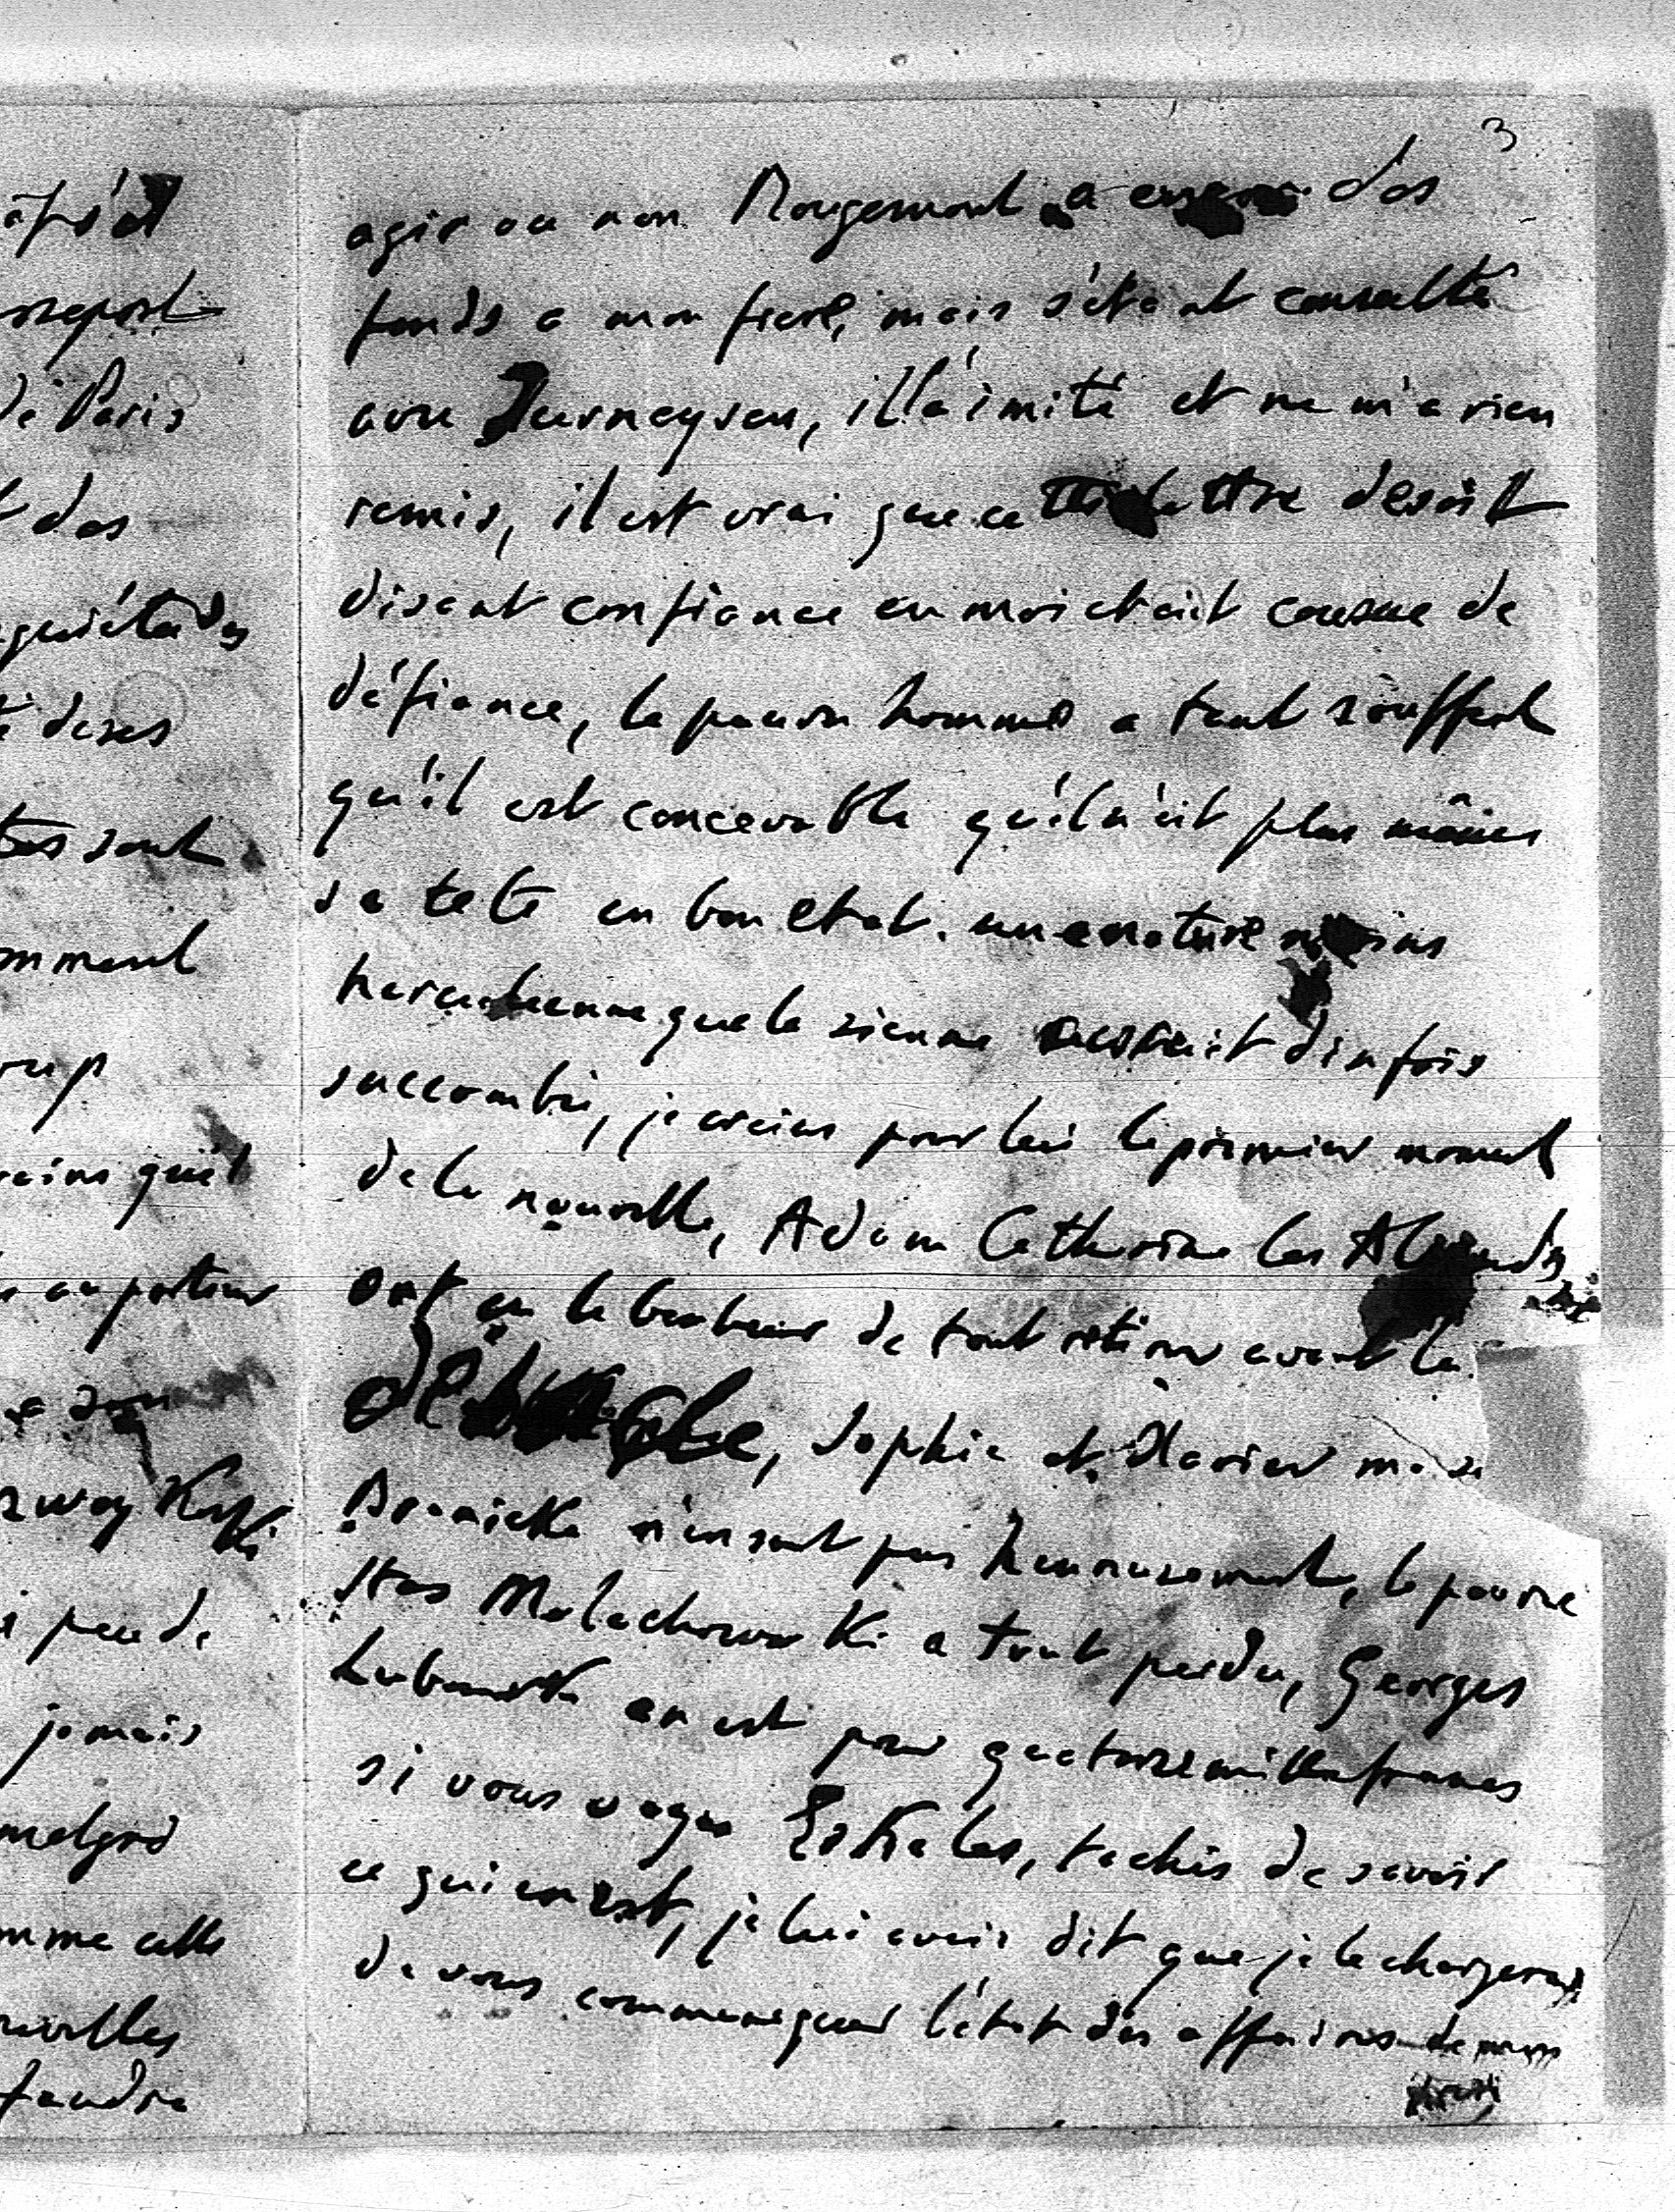 3
àfsé
passeport
de Paris
t des
nquiétudes
té de ses
tes sont
omment
oup
rains qu'il
au porteur
a son
peu de
jamais
malgré
omme celle
nouvelles
faudra
agir ou non Rougemont a des
fonds a mon frere, mais s'étant consulté
avec Thurneyssen, il l'a imité et ne m'a rien
remis, il est vrai que cette lettre
disant confiance en moi etait cousue de
défiance, le pauvre homme a tant souffert
qu'il est concevable qu'il n'ait plus même
sa tete en bon etat. une nature moins
herculeenne que la sienne auroit dix fois
succombé, je crains pour lui le premier moment
de la nouvelle, Adam Catherine les
ont eu le bonheur de tout retirer avant la
débacle, Sophie et Xavier mais
Branicka n'en sont pas heureusement, le pauvre
Stas Malachowski a tout perdu, Georges
en est pour quatorze mille francs
si vous voyez Eskeles, tachés de savoir
ce qui en est, je lui avais dit que je le chargerais
de vous communiquer l'état des affaires de mon